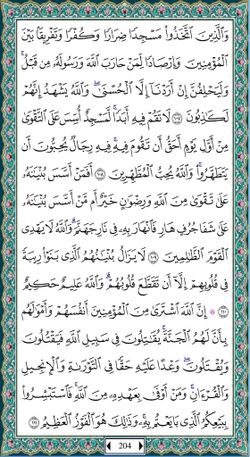 وَٱلَّذِينَ ٱتَّخَذُوا۟ مَسْجِدًا ضِرَارًا وَكُفْرًا وَتَفْرِيقًۢا بَيْنَ
ٱلْمُؤْمِنِينَ وَإِرْصَادًا لِّمَنْ حَارَبَ ٱللَّهَ وَرَسُولَهُۥ مِن قَبْلُ ۚ
وَلَيَحْلِفُنَّ إِنْ أَرَدْنَآ إِلَّا ٱلْحُسْنَىٰ ۖ وَٱللَّهُ يَشْهَدُ إِنَّهُمْ
لَكَٰذِبُونَ ١٠٧ لَا تَقُمْ فِيهِ أَبَدًا ۚ لَّمَسْجِدٌ أُسِّسَ عَلَى ٱلتَّقْوَىٰ
مِنْ أَوَّلِ يَوْمٍ أَحَقُّ أَن تَقُومَ فِيهِ ۚ فِيهِ رِجَالٌ يُحِبُّونَ أَن
يَتَطَهَّرُوا۟ ۚ وَٱللَّهُ يُحِبُّ ٱلْمُطَّهِّرِينَ ١٠٨ أَفَمَنْ أَسَّسَ بُنْيَٰنَهُۥ
عَلَىٰ تَقْوَىٰ مِنَ ٱللَّهِ وَرِضْوَٰنٍ خَيْرٌ أَم مَّنْ أَسَّسَ بُنْيَٰنَهُۥ
عَلَىٰ شَفَا جُرُفٍ هَارٍ فَٱنْهَارَ بِهِۦ فِى نَارِ جَهَنَّمَ ۗ وَٱللَّهُ لَا يَهْدِى
ٱلْقَوْمَ ٱلظَّٰلِمِينَ ١٠٩ لَا يَزَالُ بُنْيَٰنُهُمُ ٱلَّذِى بَنَوْا۟ رِيبَةً
فِى قُلُوبِهِمْ إِلَّآ أَن تَقَطَّعَ قُلُوبُهُمْ ۗ وَٱللَّهُ عَلِيمٌ حَكِيمٌ
١١٠ ۞ إِنَّ ٱللَّهَ ٱشْتَرَىٰ مِنَ ٱلْمُؤْمِنِينَ أَنفُسَهُمْ وَأَمْوَٰلَهُم
بِأَنَّ لَهُمُ ٱلْجَنَّةَ ۚ يُقَٰتِلُونَ فِى سَبِيلِ ٱللَّهِ فَيَقْتُلُونَ
وَيُقْتَلُونَ ۖ وَعْدًا عَلَيْهِ حَقًّا فِى ٱلتَّوْرَىٰةِ وَٱلْإِنجِيلِ
وَٱلْقُرْءَانِ ۚ وَمَنْ أَوْفَىٰ بِعَهْدِهِۦ مِنَ ٱللَّهِ ۚ فَٱسْتَبْشِرُوا۟
بِبَيْعِكُمُ ٱلَّذِى بَايَعْتُم بِهِۦ ۚ وَذَٰلِكَ هُوَ ٱلْفَوْزُ ٱلْعَظِيمُ ١١١
204